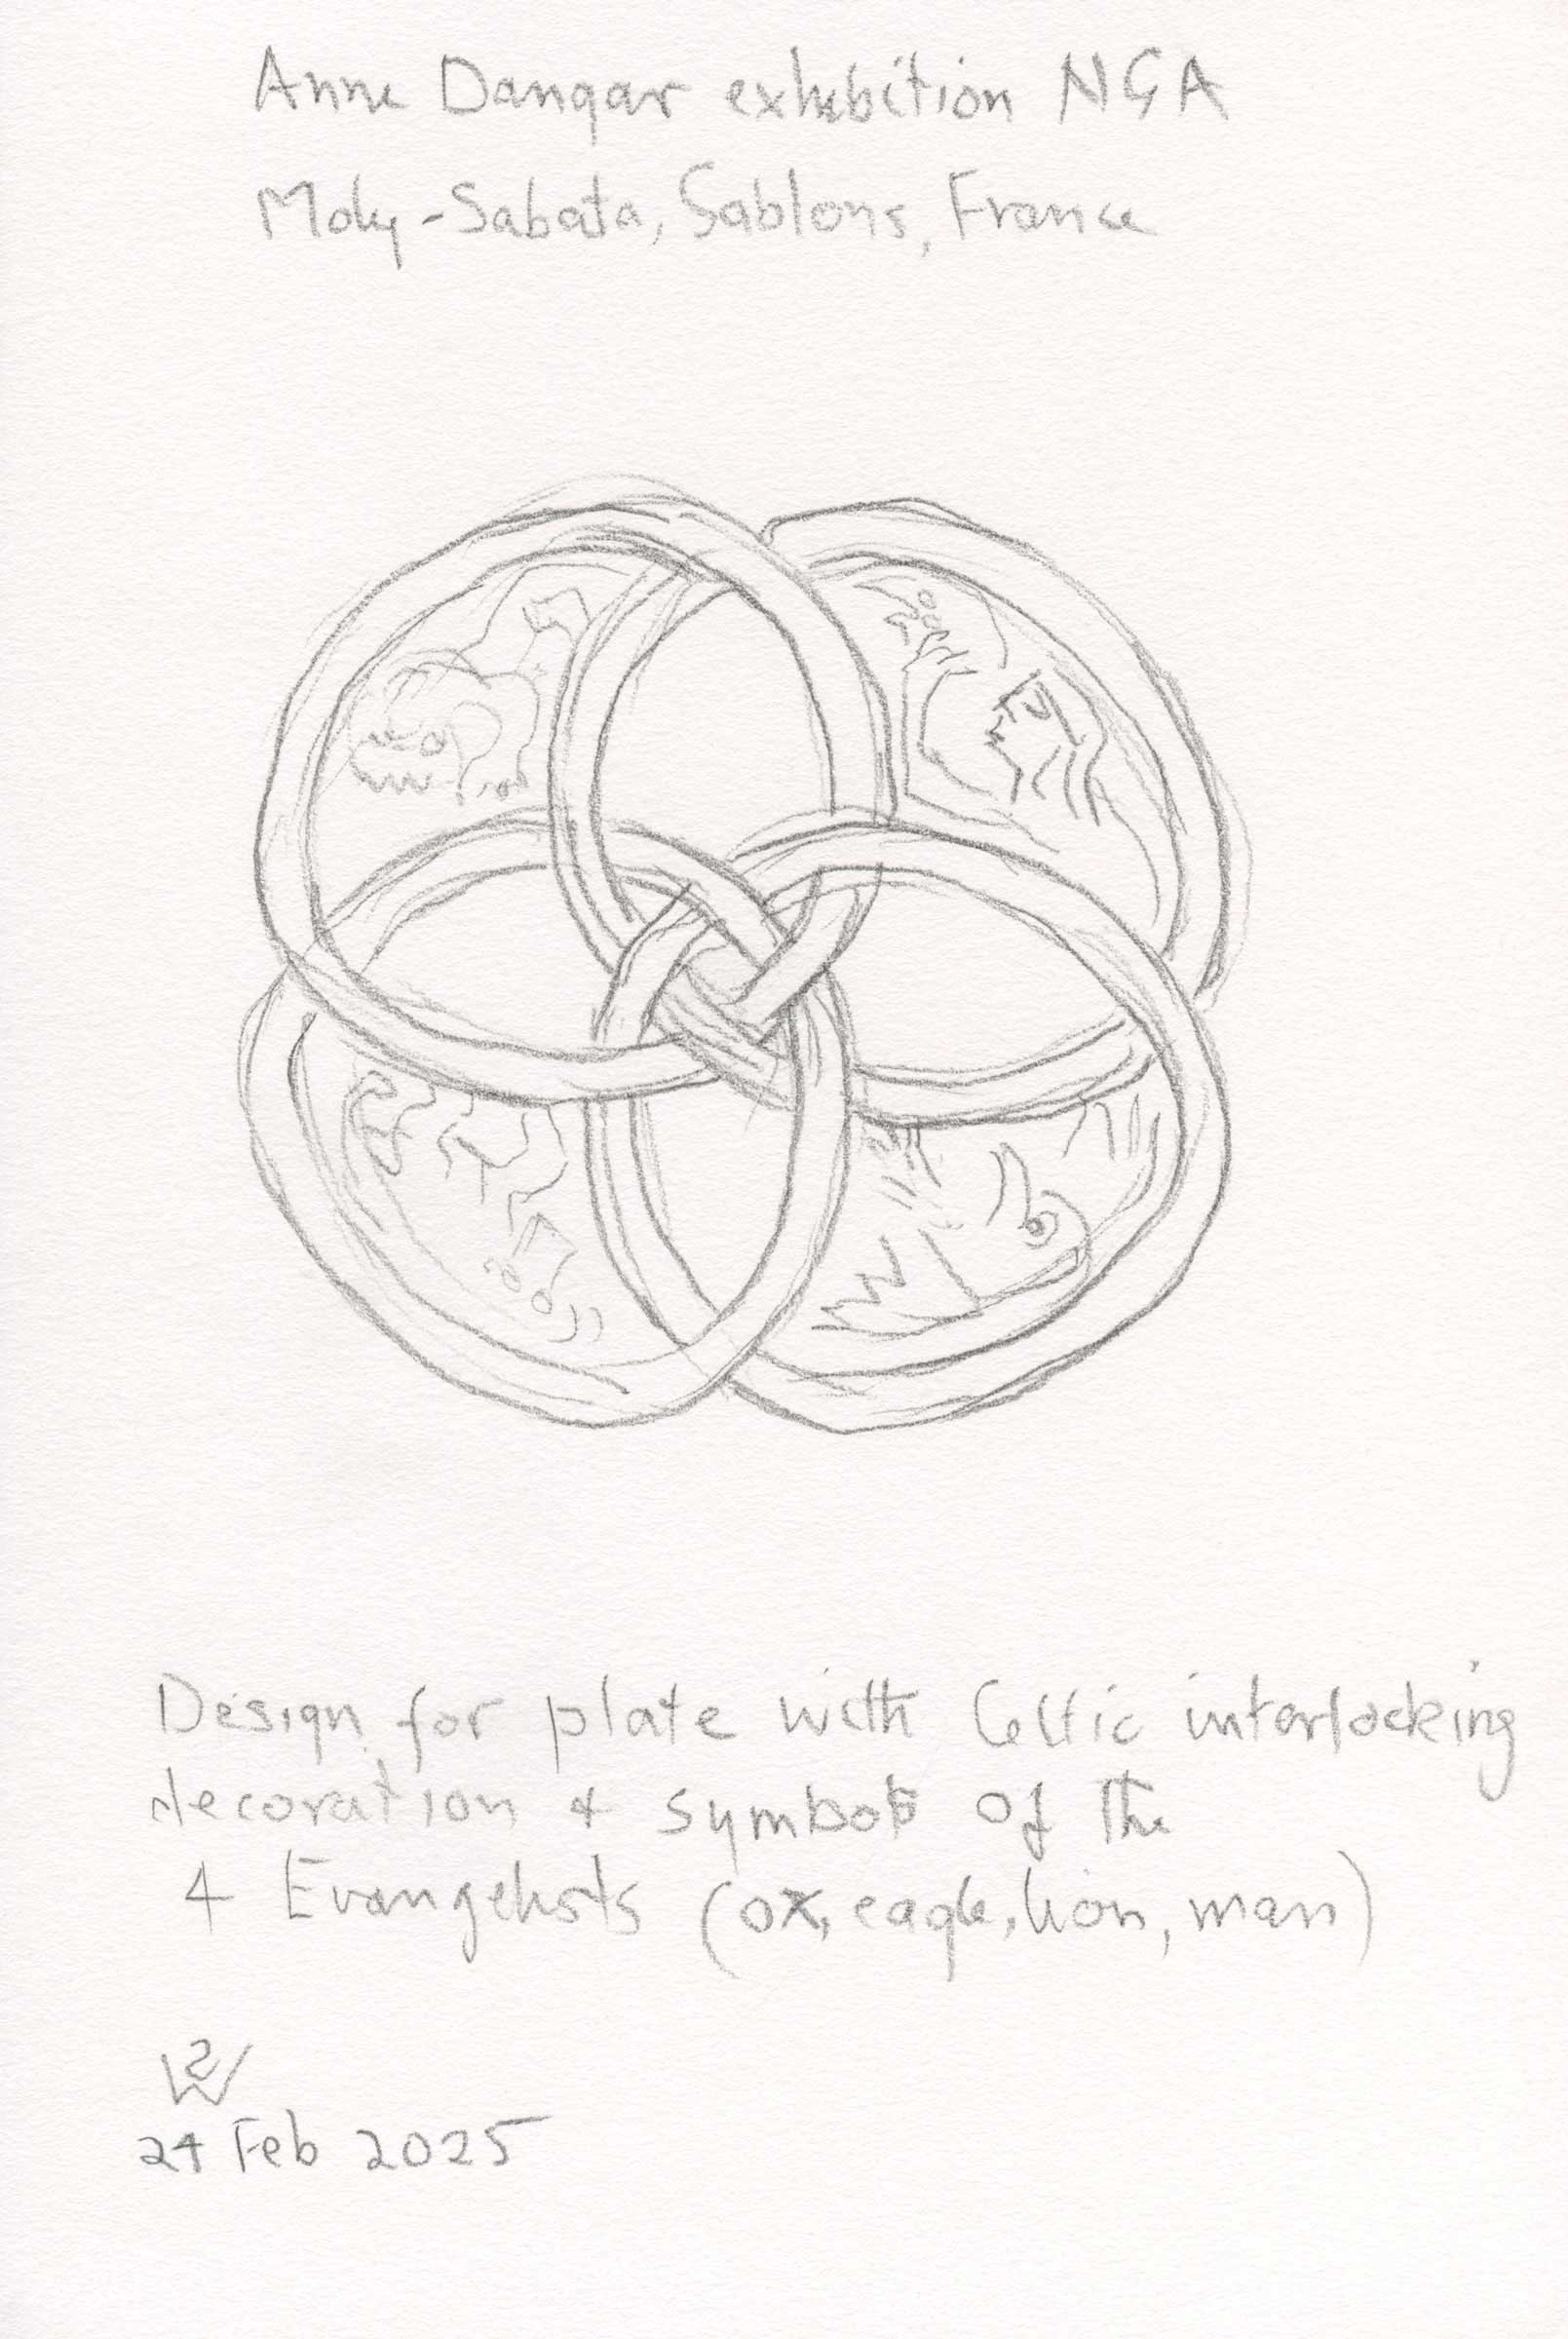 Anne Dangar exhibition NGA
Moly-Sabata, Sablons, France
Design for plate with Celtic interlocking
decoration & symbols of the
4 Evangelists (ox, eagle, lion, man)
24 Feb 2025